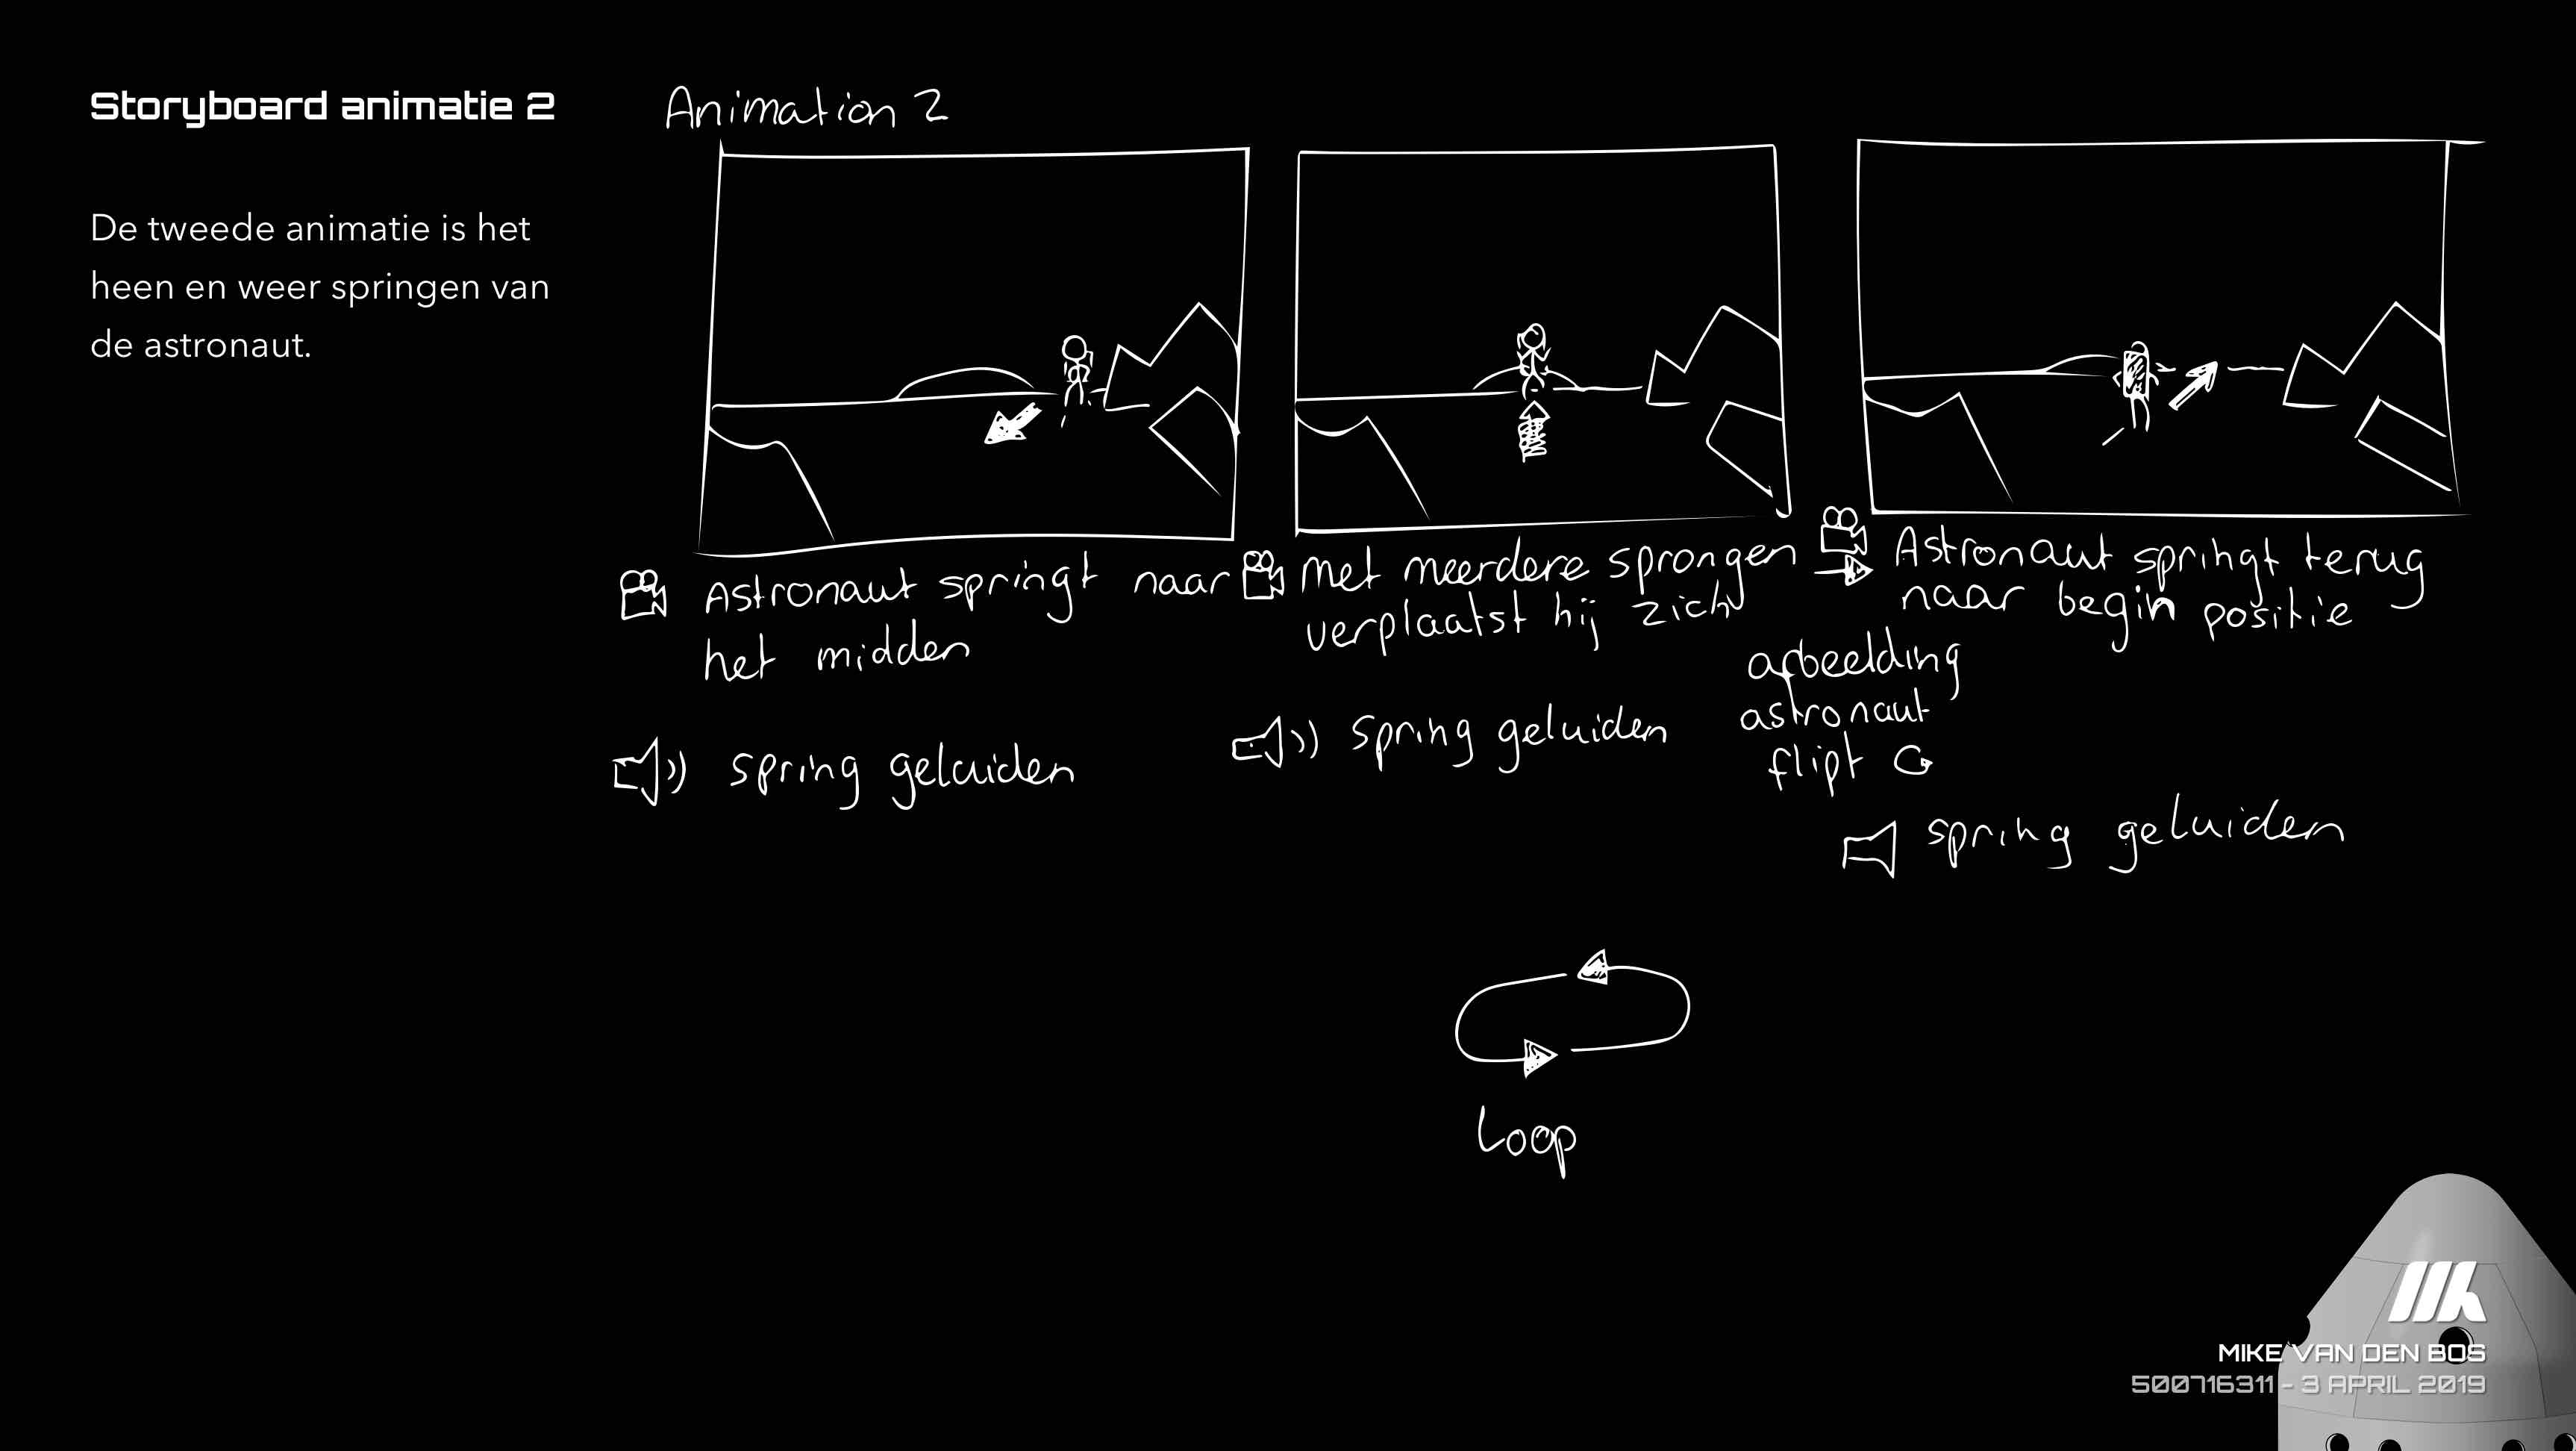 Storyboard animatie 2
De tweede animatie is het
heen en weer springen van
de astronaut.
Animation 2
Astronaut springt naar
het midden
spring geluiden
Met meerdere sprongen
verplaatst hij zich
spring geluiden
Astronaut springt terug
naar begin positie
afbeelding
astronaut
flipt
spring geluiden
Loop
MIKE VAN DEN BOS
500716311 - 3 APRIL 2019